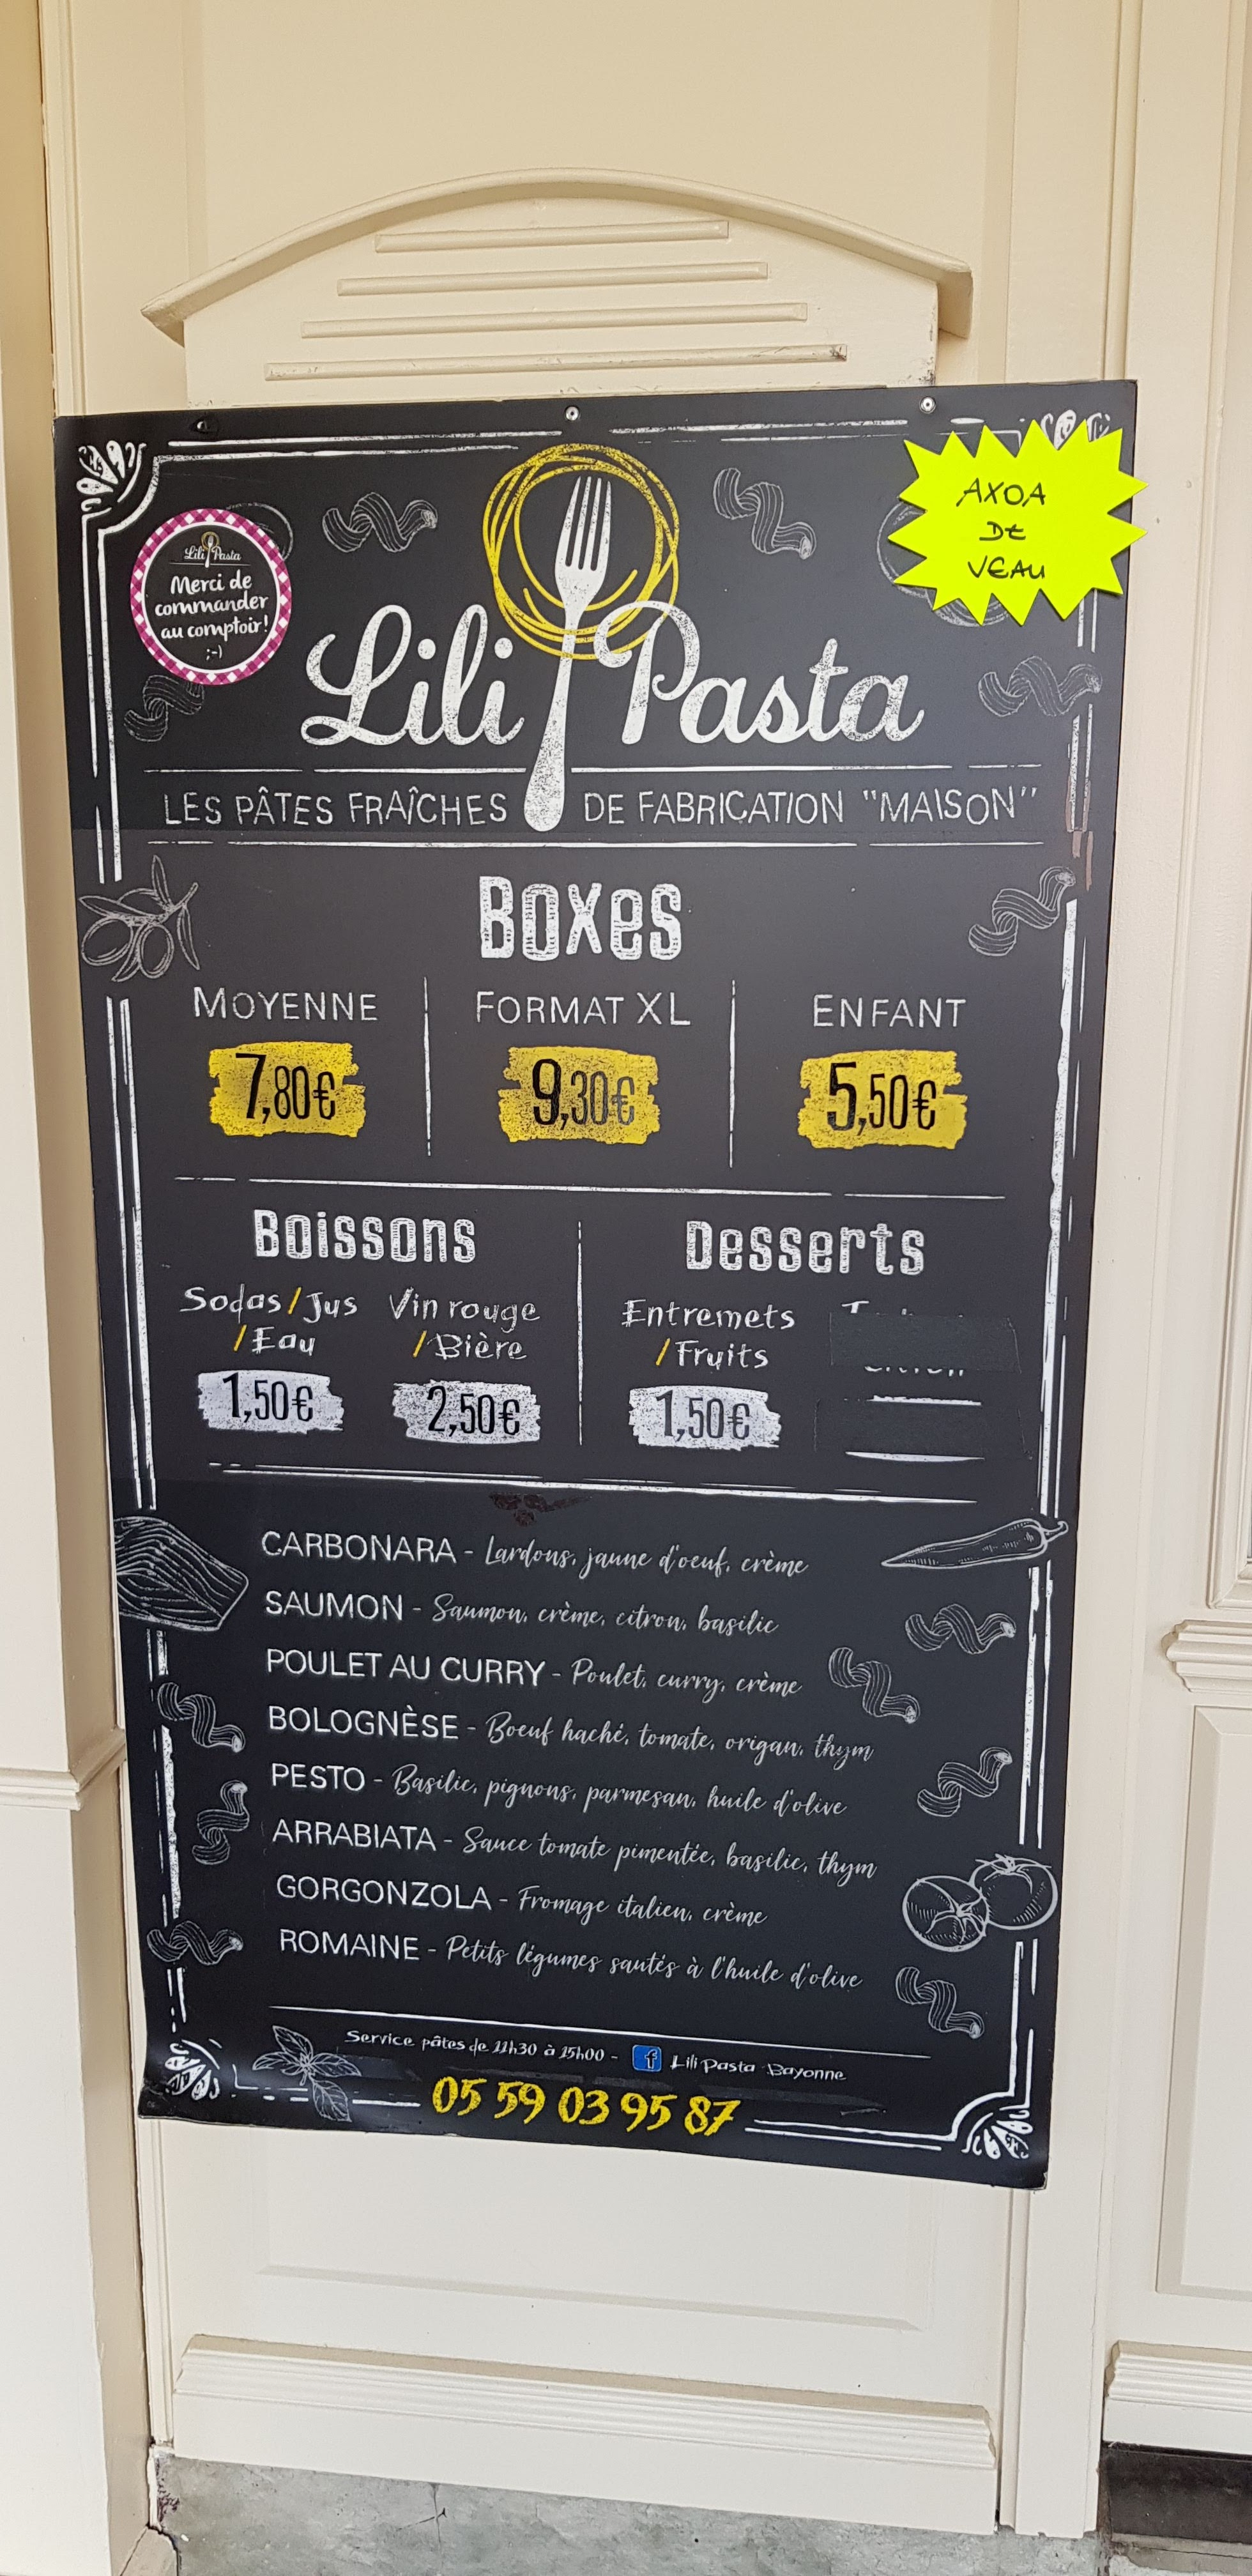 AXOA
De
VEAU
Lili Pasta
Merci de
commander
au comptoir!
;-)
Lili Pasta
LES PÂTES FRAÎCHES DE FABRICATION "MAISON"
Boxes
MOYENNE FORMAT XL ENFANT
7,80€ 9,30€ 5,50€
Boissons Desserts
Sodas/Jus Vin rouge Entremets
/Eau /Bière /Fruits
1,50€ 2,50€ 1,50€
CARBONARA - Lardons, jaune d'oeuf, crème
SAUMON - Saumon, crème, citron, basilic
POULET AU CURRY - Poulet, curry, crème
BOLOGNÈSE - Boeuf haché, tomate, origan, thym
PESTO - Basilic, pignons, parmesan, huile d'olive
ARRABIATA - Sauce tomate pimentée, basilic, thym
GORGONZOLA - Fromage italien, crème
ROMAINE - Petits légumes sautés à l'huile d'olive
Service pâtes de 11h30 à 15h00 - f Lili Pasta Bayonne
05 59 03 95 87